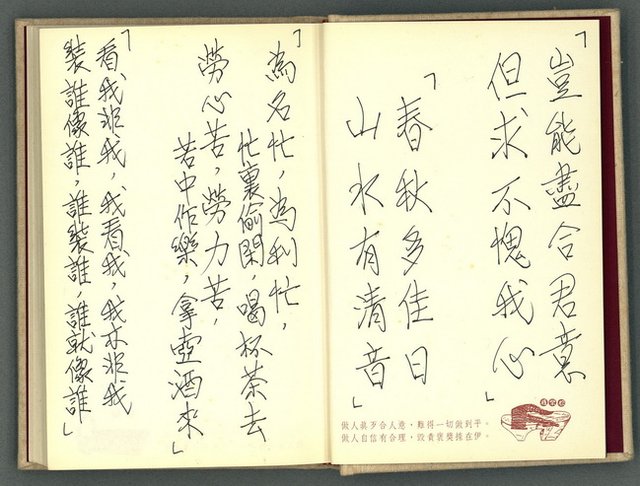 豈能盡合君意
但求不愧我心」
「春秋多佳日
山水有清音」
做人眞歹合人意，難得一切做到平。
做人自信有合理，毀責褒獎採在伊。
「為名忙，為利忙，
忙裏偷閑，喝杯茶去
勞心苦，勞力苦，
苦中作樂，拿壺酒來」
「看我非我，我看我，我亦非我
裝誰像誰，誰裝誰，誰就像誰」